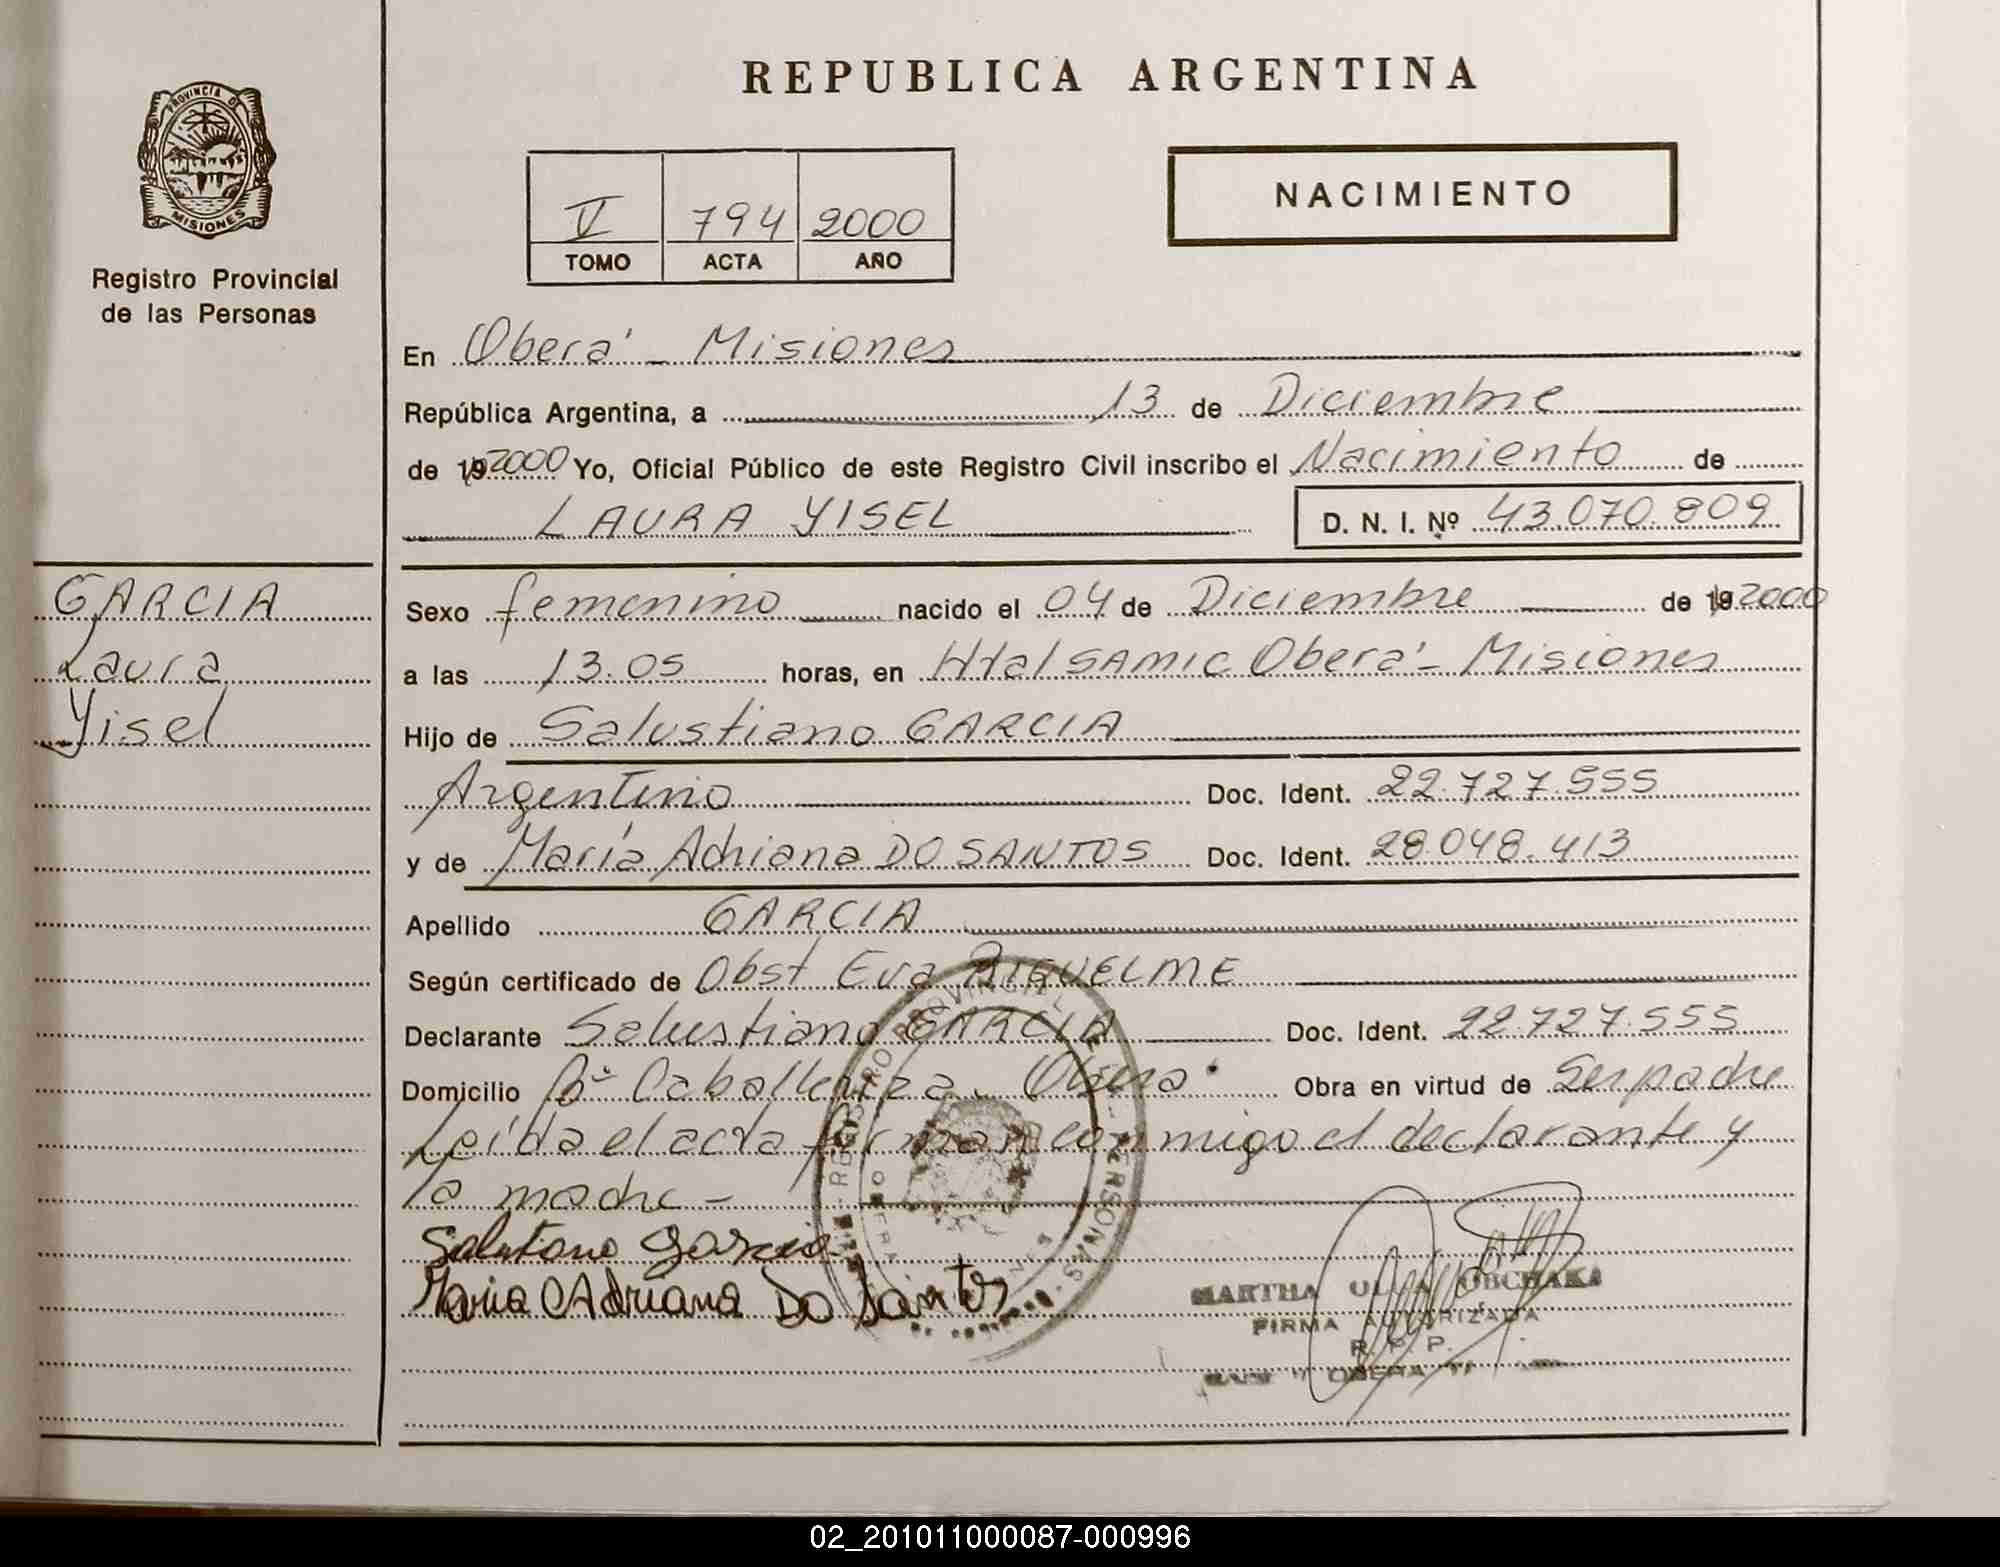 REPUBLICA ARGENTINA
PROVINCIA DE
MISIONES
Registro Provincial
de las Personas
NACIMIENTO
V 794 2000
TOMO ACTA AÑO
En Oberá - Misiones
República Argentina, a 13 de Diciembre
de 19 2000 Yo, Oficial Público de este Registro Civil inscribo el Nacimiento de
LAURA YISEL D. N. I. Nº 43.070.809
GARCIA
Laura
Yisel
Sexo femenino nacido el 04 de Diciembre de 19 2000
a las 13.05 horas, en Htal SAMIC Oberá - Misiones
Hijo de Salustiano GARCIA
Argentino Doc. Ident. 22.727.555
y de María Adriana DO SANTOS Doc. Ident. 28.048.413
Apellido GARCIA
Según certificado de Obst Eva RIQUELME
Declarante Salustiano GARCIA Doc. Ident. 22.727.555
Domicilio Bº Caballeriza - Oberá Obra en virtud de Ser padre
Leída el acta firman conmigo el declarante y
la madre -
Salustiano Garcia
Maria Adriana Do Santos
REGISTRO PROVINCIAL DE PERSONAS
MARTHA OLGA OBCHAKA
FIRMA AUTORIZADA
R. P. P.
OBERA
02_201011000087-000996